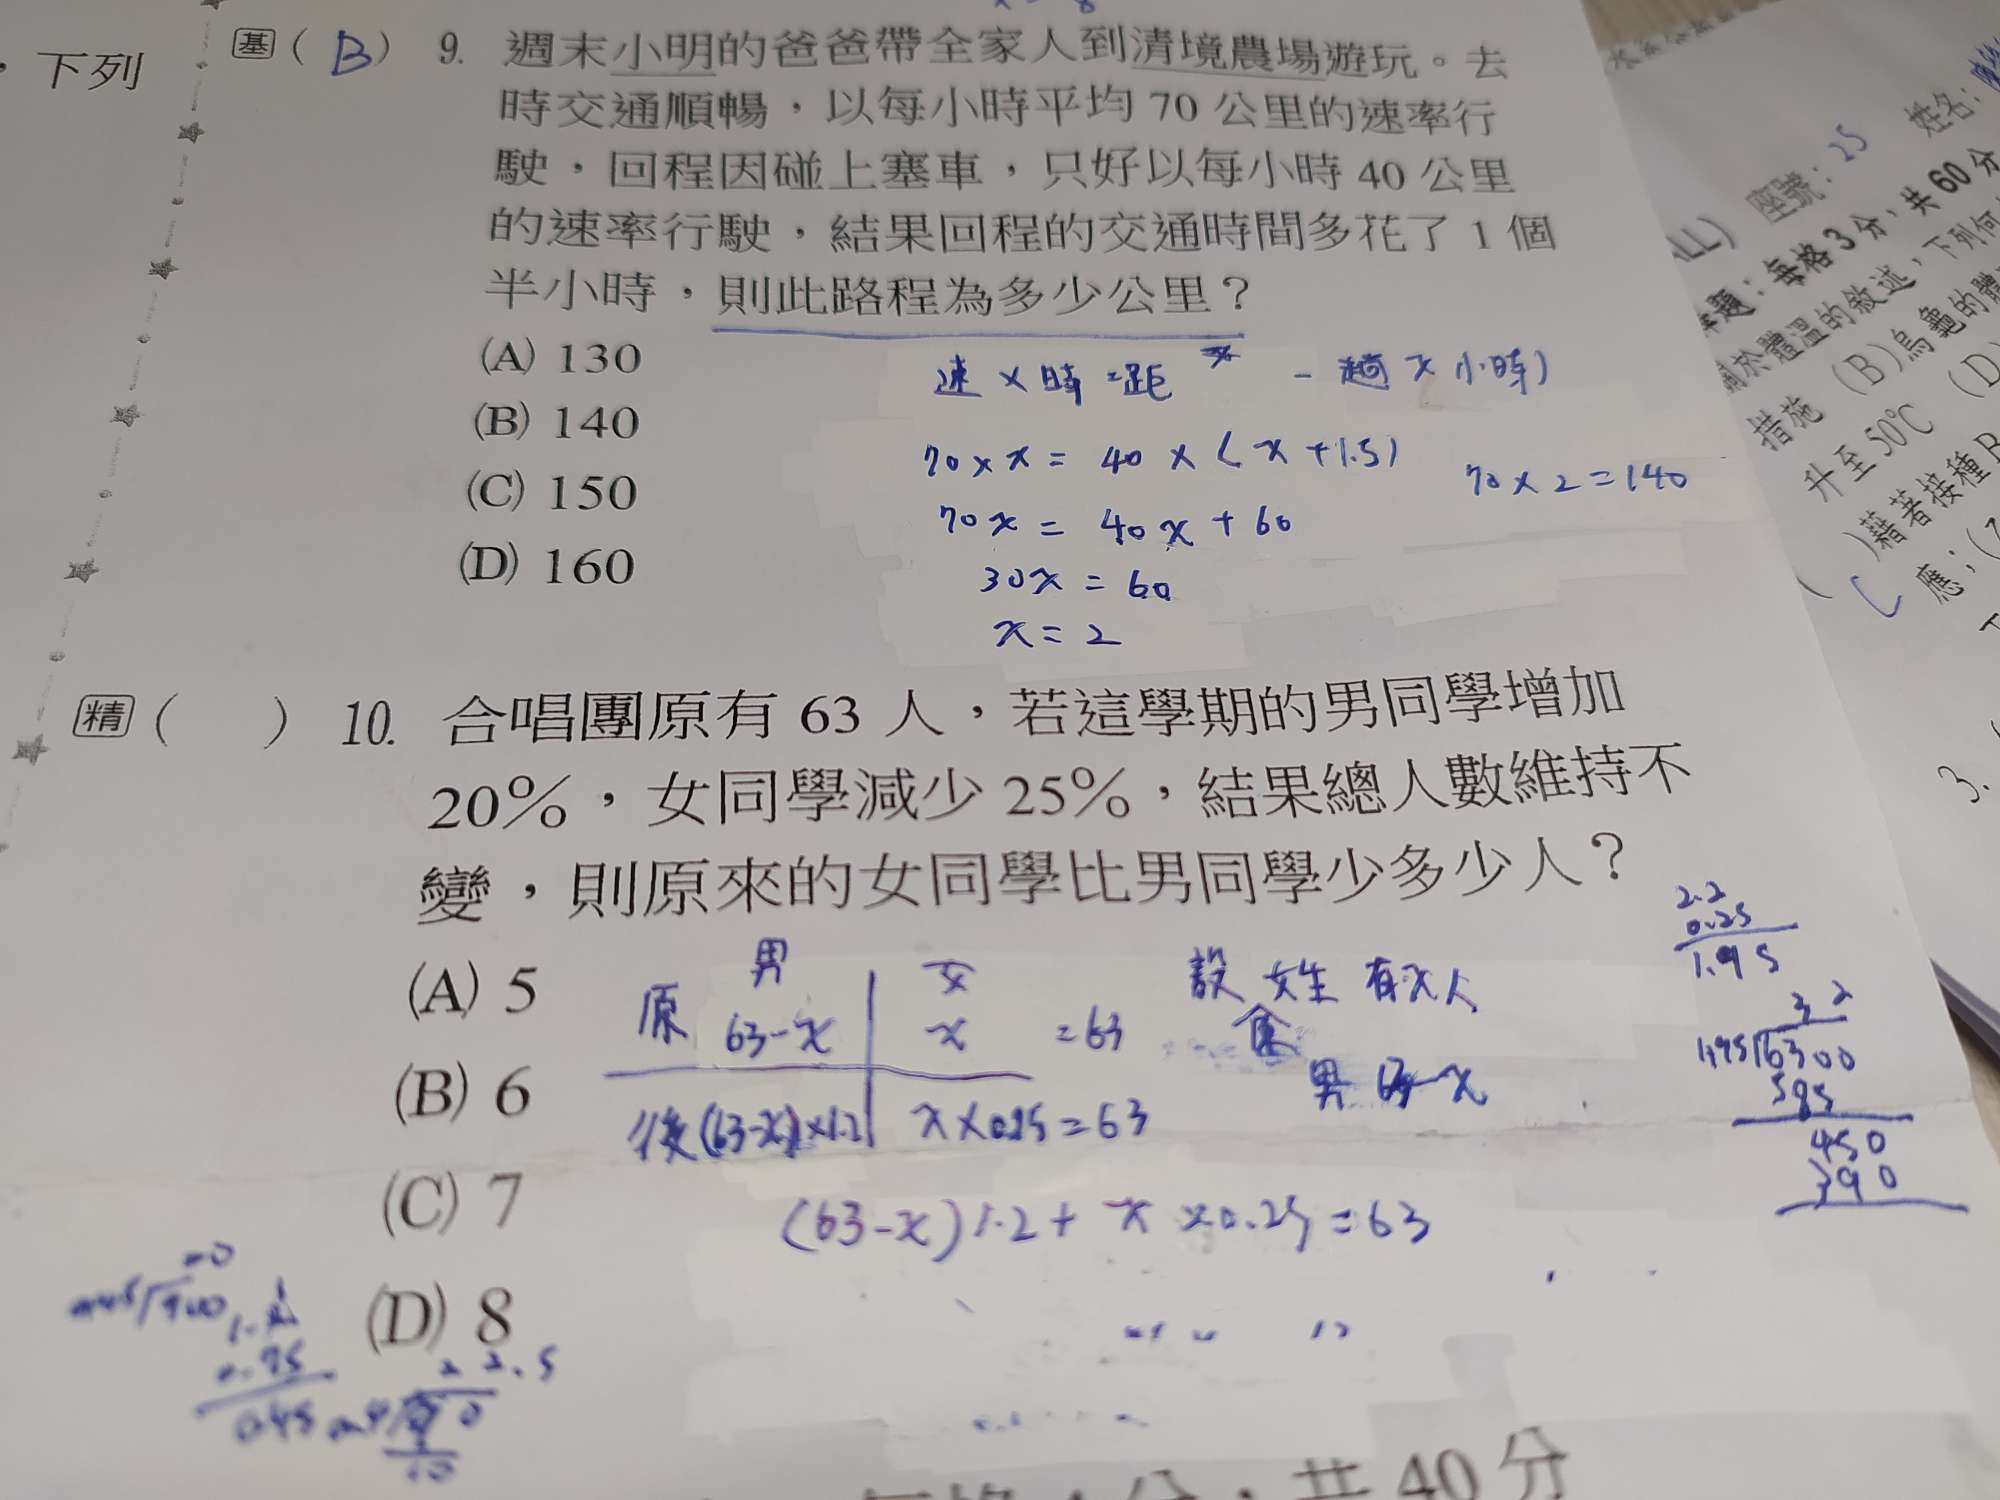 ，下列
基 ( B ) 9. 週末小明的爸爸帶全家人到清境農場遊玩。去
時交通順暢，以每小時平均 70 公里的速率行
駛，回程因碰上塞車，只好以每小時 40 公里
的速率行駛，結果回程的交通時間多花了 1 個
半小時，則此路程為多少公里？
(A) 130
(B) 140
(C) 150
(D) 160
速 × 時 = 距
一趟 x 小時)
70 × x = 40 × ( x + 1.5)
70x = 40x + 60
30x = 60
x = 2
70 × 2 = 140
精 ( ) 10. 合唱團原有 63 人，若這學期的男同學增加
20%，女同學減少 25%，結果總人數維持不
變，則原來的女同學比男同學少多少人？
(A) 5
(B) 6
(C) 7
(D) 8
男 女
原 63-x x =63
後 (63-x)×1.2 x×0.25=63
設 女生 有x人
男 63-x
(63-x)1.2+ x ×0.25=63
2.2
0.25
1.95
3 2
1.95 6300
585
450
390
0.45
2 2.5
共 40 分
ALL) 座號：25 姓名：
題：每格 3 分，共 60 分
關於體溫的敘述，下列何
措施 (B)烏龜的體
升至 50℃ (D)
)藉著接種 B
( C 應；
3.